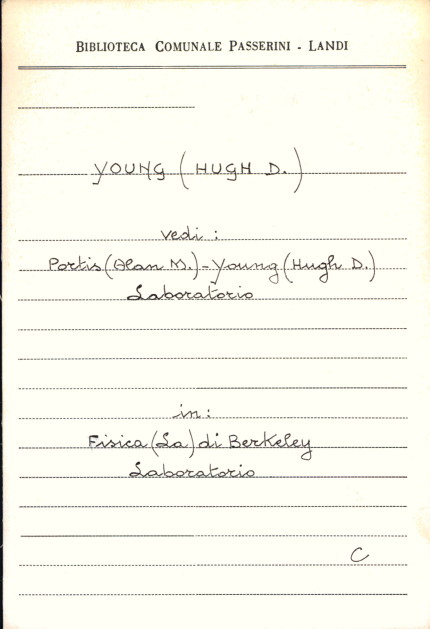 BIBLIOTECA COMUNALE PASSERINI - LANDI
YOUNG (HUGH D.)
vedi :
Portis (Alan M.) - Young (Hugh D.)
Laboratorio
in :
Fisica (La) di Berkeley
Laboratorio
C